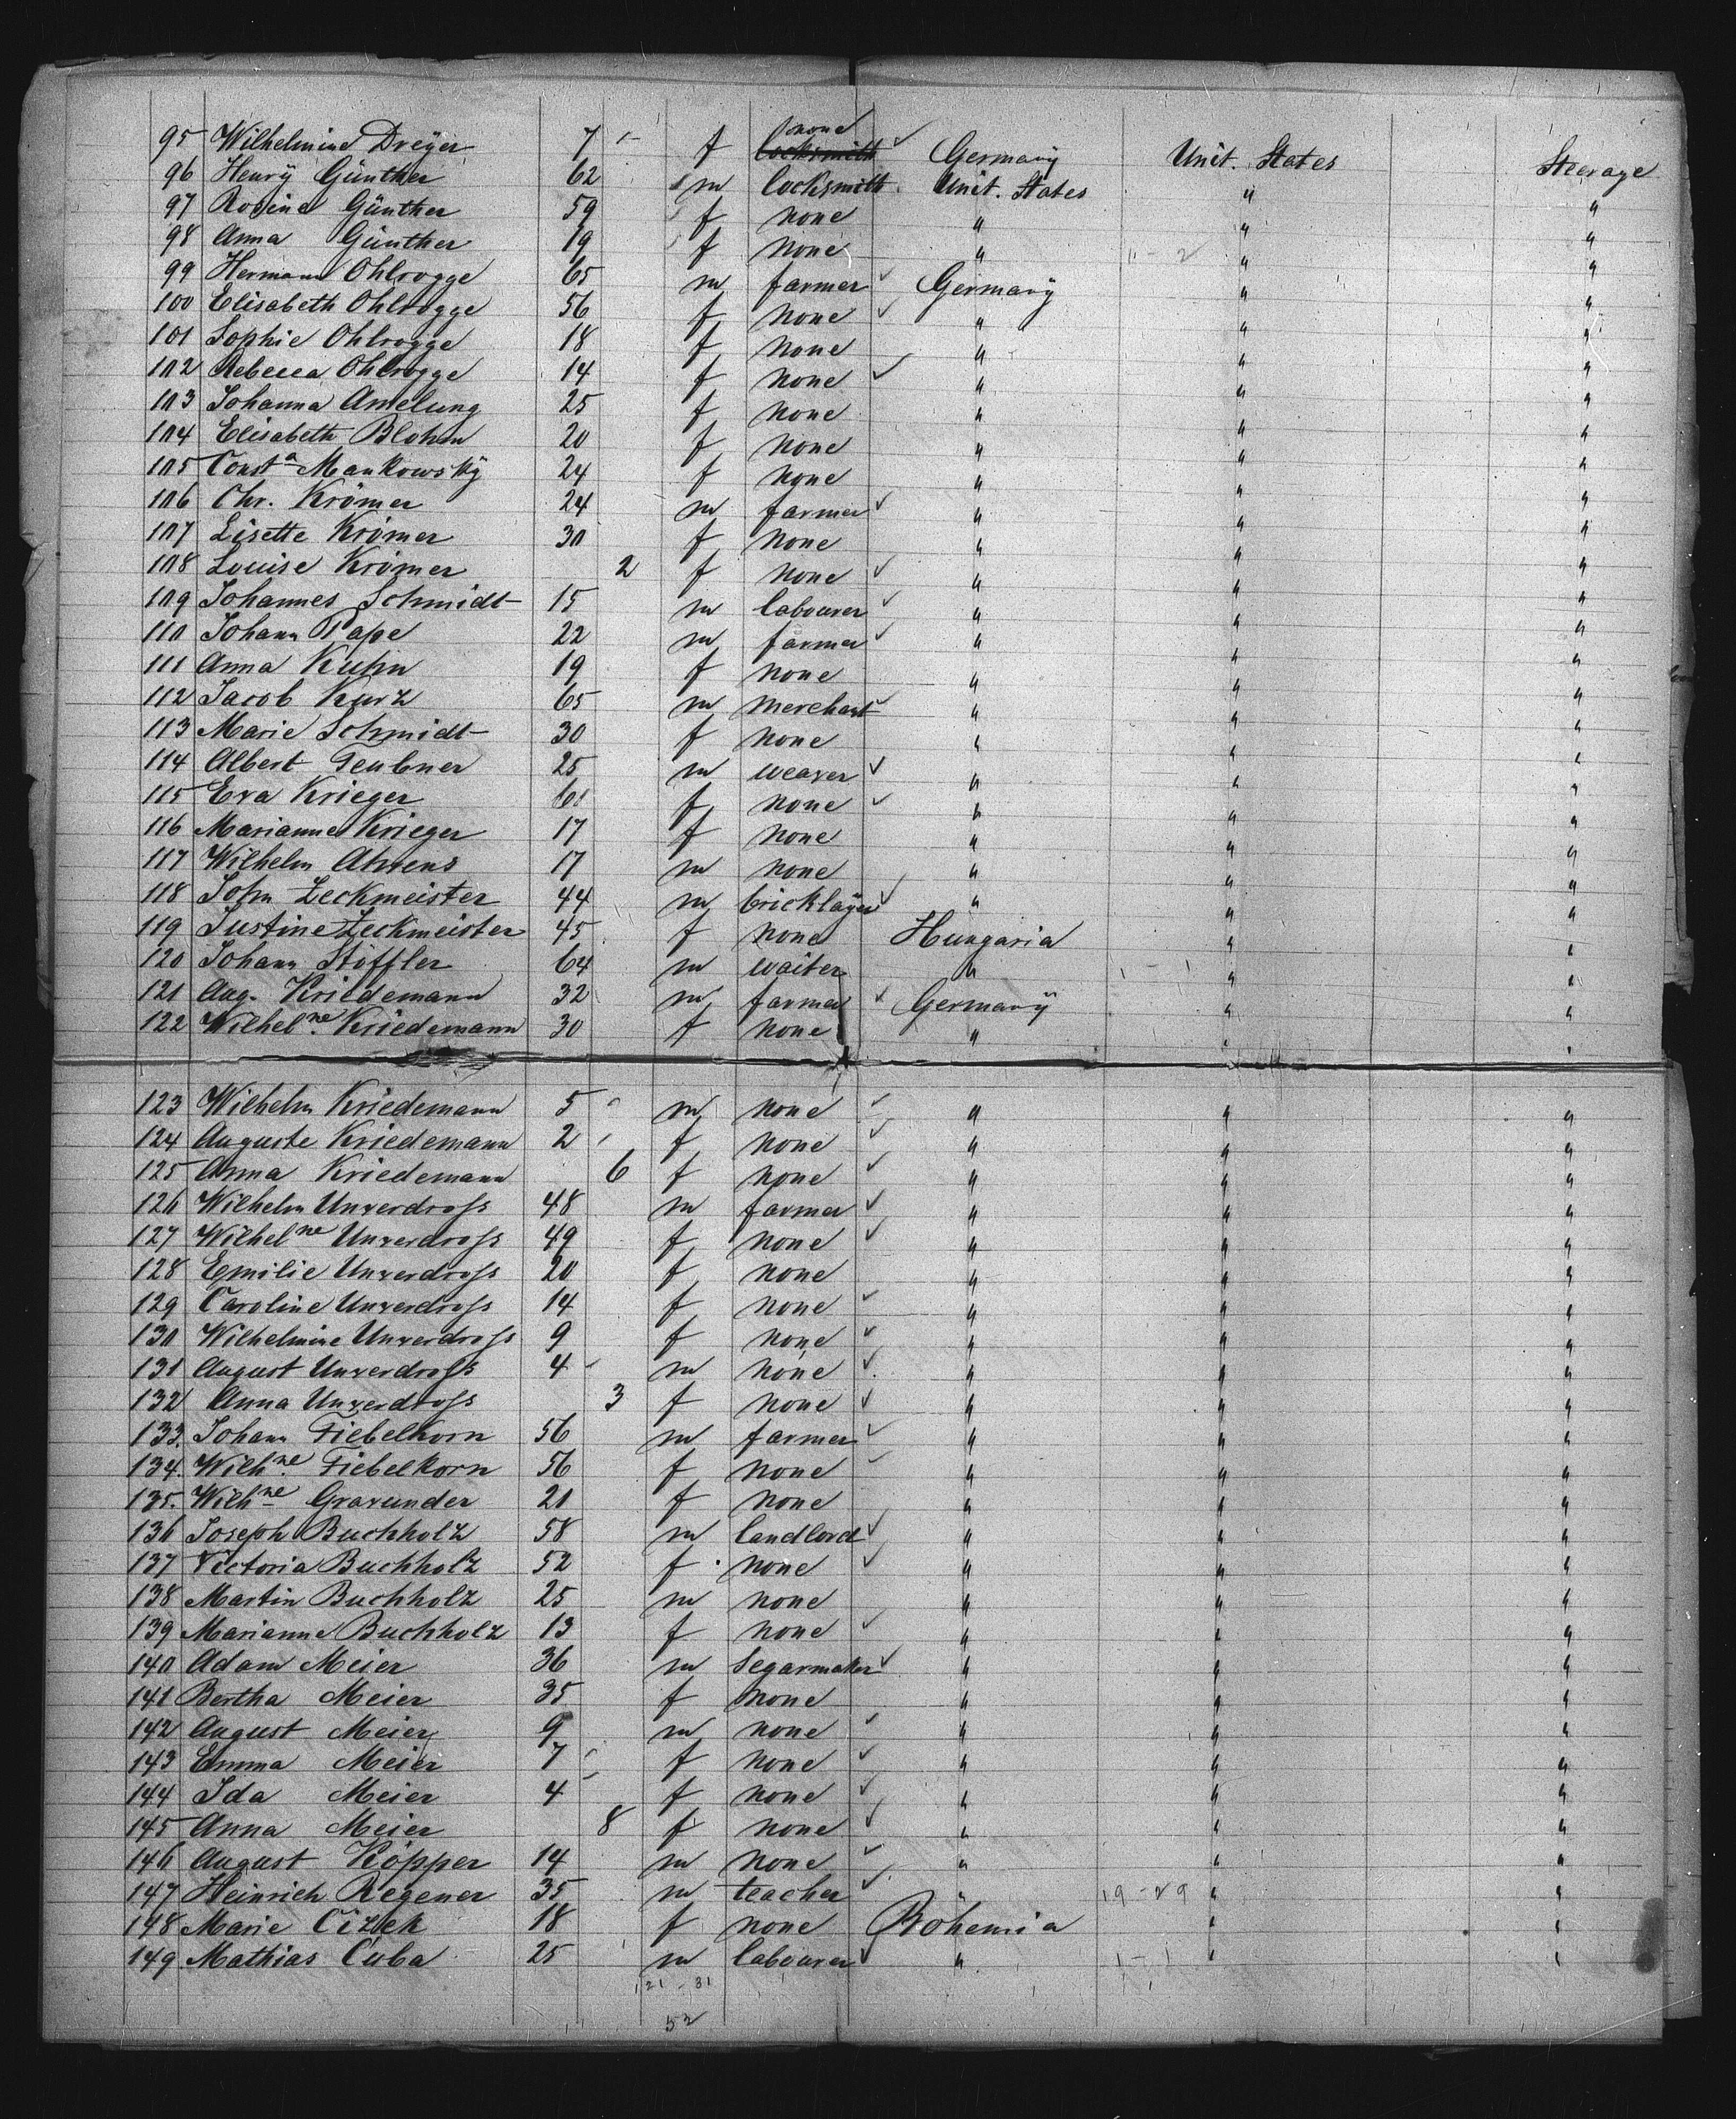 95 Wilhelmine Dreÿer 7 f none locksmith Germanÿ Unit. States Steerage
96 Henrÿ Günther 62 m locksmith Unit. States " "
97 Rosine Günther 59 f none " " "
98 Anna Günther 19 f none " " "
99 Hermann Ohlrogge 65 m farmer Germanÿ " "
100 Elisabeth Ohlrogge 56 f none " " "
101 Sophie Ohlrogge 18 f none " " "
102 Rebecca Ohlrogge 14 f none " " "
103 Johanna Amelung 25 f none " " "
104 Elisabeth Blohm 20 f none " " "
105 Const a Mankowskÿ 24 f none " " "
106 Chr. Krömer 24 m farmer " " "
107 Lisette Krömer 30 f none " " "
108 Louise Krömer 2 f none " " "
109 Johannes Schmidt 15 m labourer " " "
110 Johann Pape 22 m farmer " " "
111 Anna Kuhn 19 f none " " "
112 Jacob Kurz 65 m merchant " " "
113 Marie Schmidt 30 f none " " "
114 Albert Teubner 25 m weaver " " "
115 Eva Krieger f none " " "
116 Marianne Krieger 17 f none " " "
117 Wilhelm Ahrens 17 m none " " "
118 John Zeckmeister 44 m bricklayer " " "
119 Justine Zeckmeister 45 f none Hungaria " "
120 Johann Stöffler 64 m waiter " " "
121 Aug. Kriedemann 32 m farmer Germanÿ " "
122 Wilhel ne. Kriedemann 30 f none " " "
123 Wilhelm Kriedemann 5 m none " " "
124 Auguste Kriedemann 2 f none " " "
125 Anna Kriedemann 6 f none " " "
126 Wilhelm Unverdross 48 m farmer " " "
127 Wilhel ne Unverdross 49 f none " " "
128 Emilie Unverdross 20 f none " " "
129 Caroline Unverdross 14 f none " " "
130 Wilhelmine Unverdross 9 f none " " "
131 August Unverdross 4 m none " " "
132 Anna Unverdross 3 f none " " "
133. Johann Fiebelkorn 56 m farmer " " "
134. Wilh ne. Fiebelkorn 56 f none " " "
135. Wilh ne Gravunder 21 f none " " "
136 Joseph Buchholz 58 m landlord " " "
137 Victoria Buchholz 52 f none " " "
138 Martin Buchholz 25 m none " " "
139 Marianne Buchholz 13 f none " " "
140 Adam Meier 36 m Segarmaker " " "
141 Bertha Meier 35 f none " " "
142 August Meier 9 m none " " "
143 Emma Meier 7 f none " " "
144 Ida Meier 4 f none " " "
145 Anna Meier 8 f none " " "
146 August Köpper 14 m none " " "
147 Heinrich Regener 35 m teacher " 19-29 " "
148 Marie Cizek 18 f none Bohemia " "
149 Mathias Cuba 25 m labourer " 1-1 " "
21-31
52